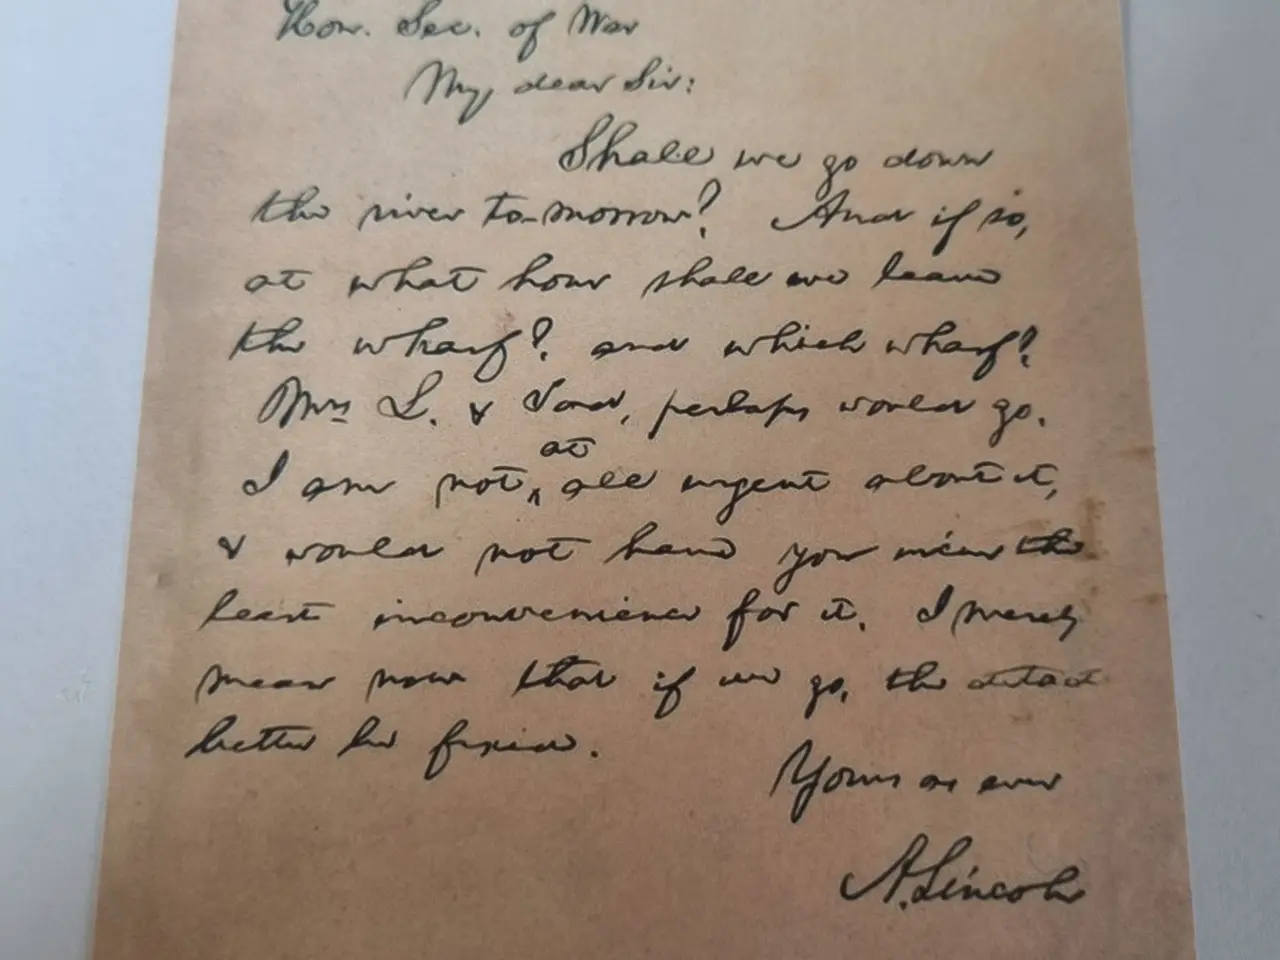 Hon. Sec. of War
My dear Sir:
Shall we go down
the river to-morrow? And if so,
at what hour shall we leave
the wharf? and which wharf?
Mrs L. & Tad, perhaps would go.
I am not at all urgent about it,
& would not have you incur the
least inconvenience for it. I merely
mean now that if we go, the
better be fixed.
Yours as ever
A. Lincoln